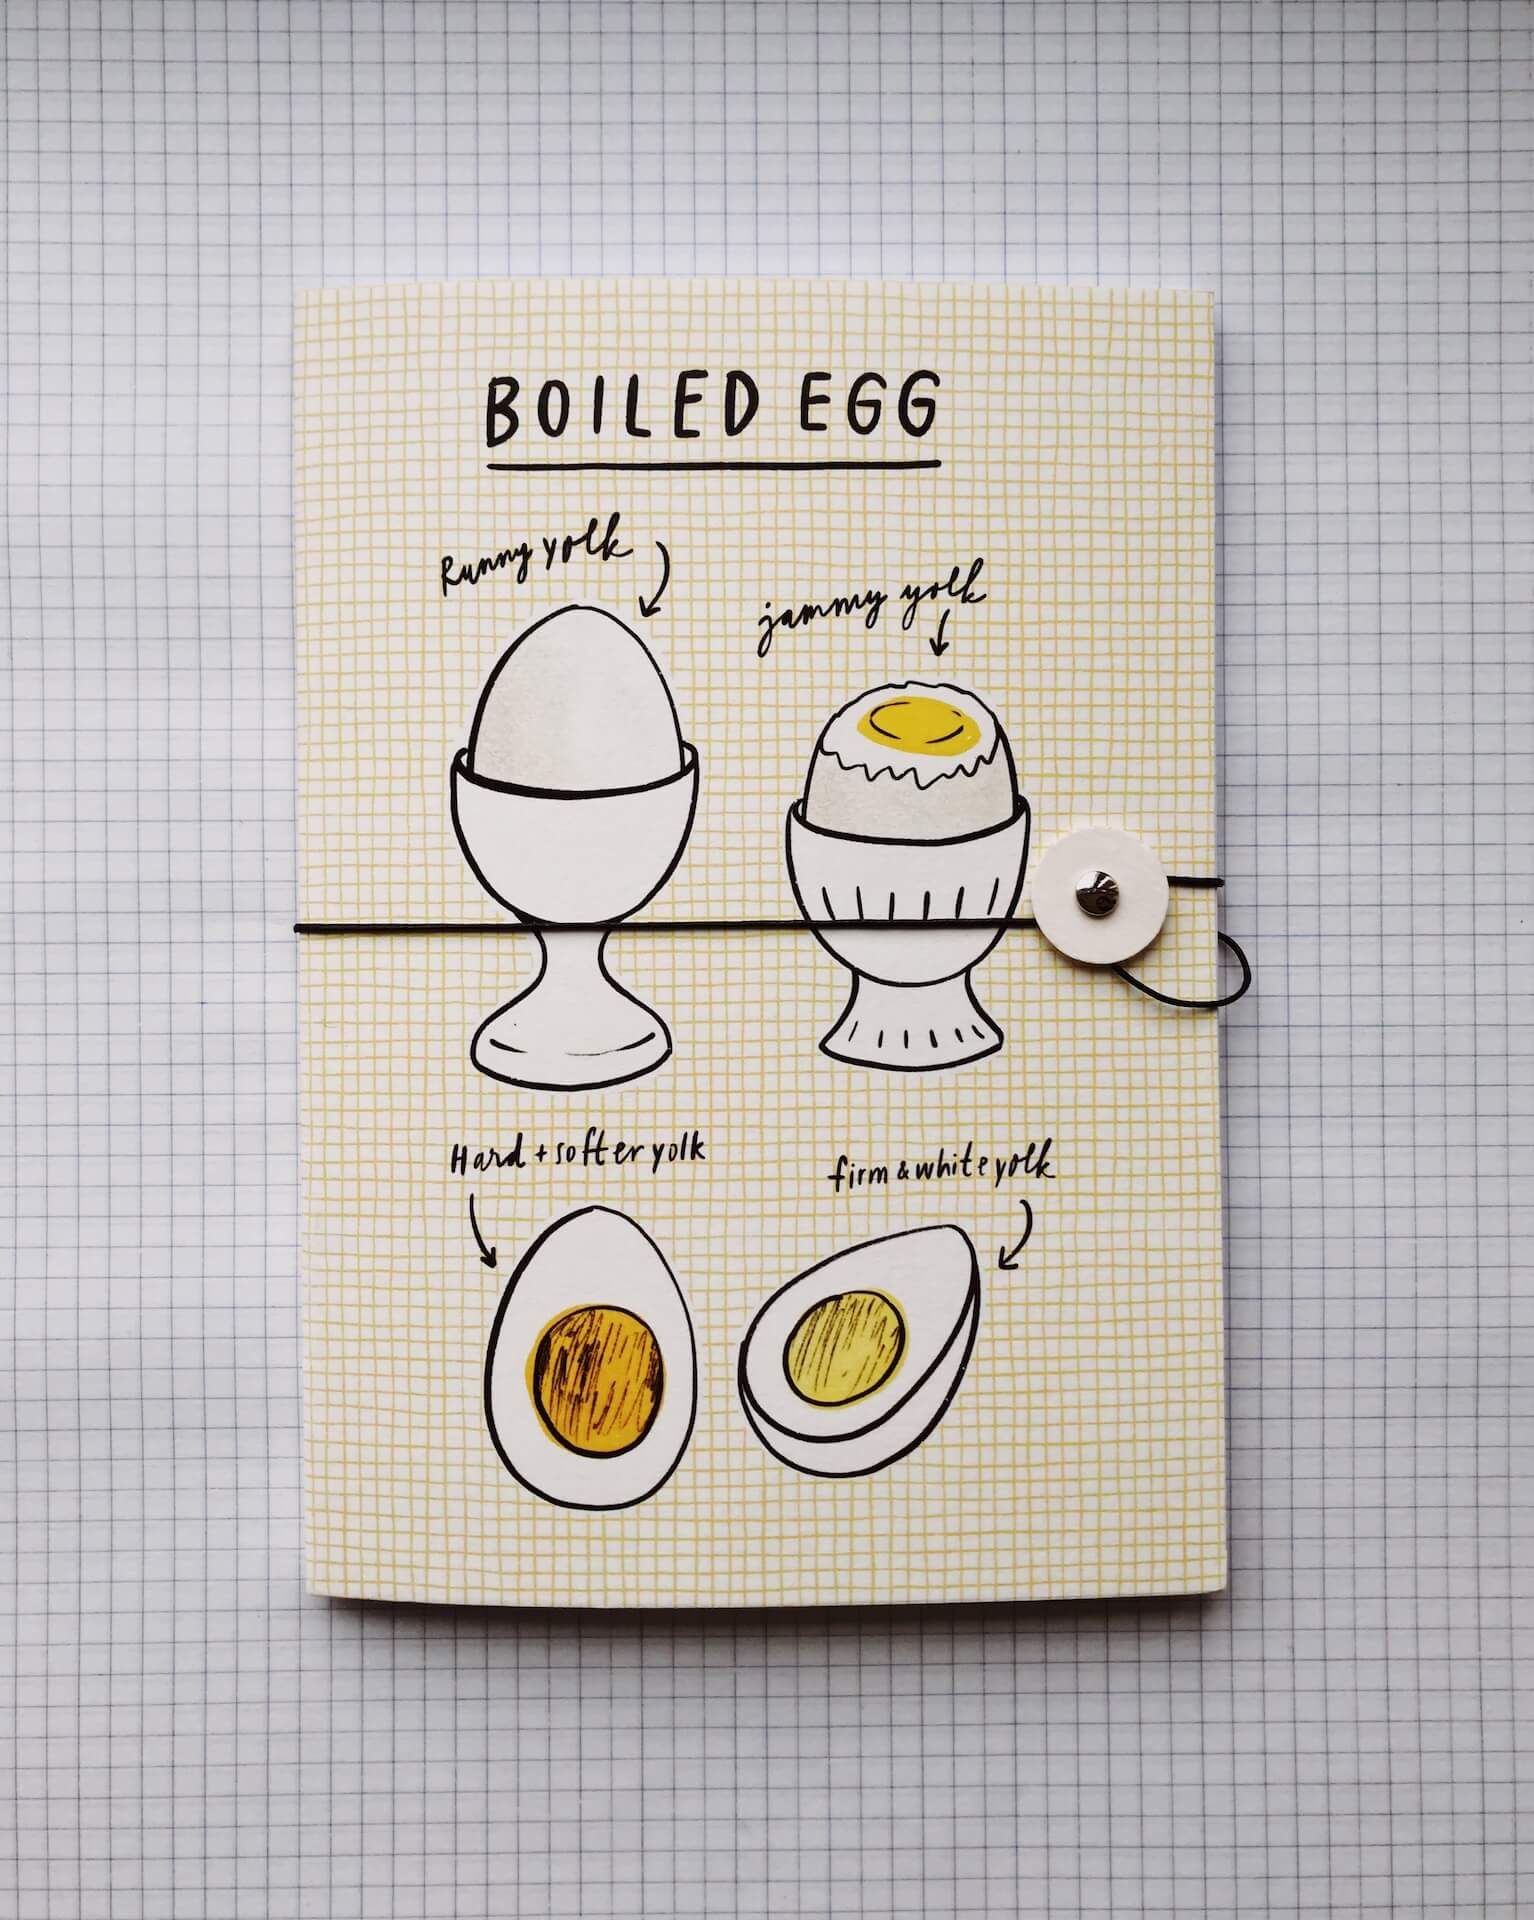 BOILED EGG
Runny yolk
jammy yolk
Hard + softer yolk
firm & white yolk